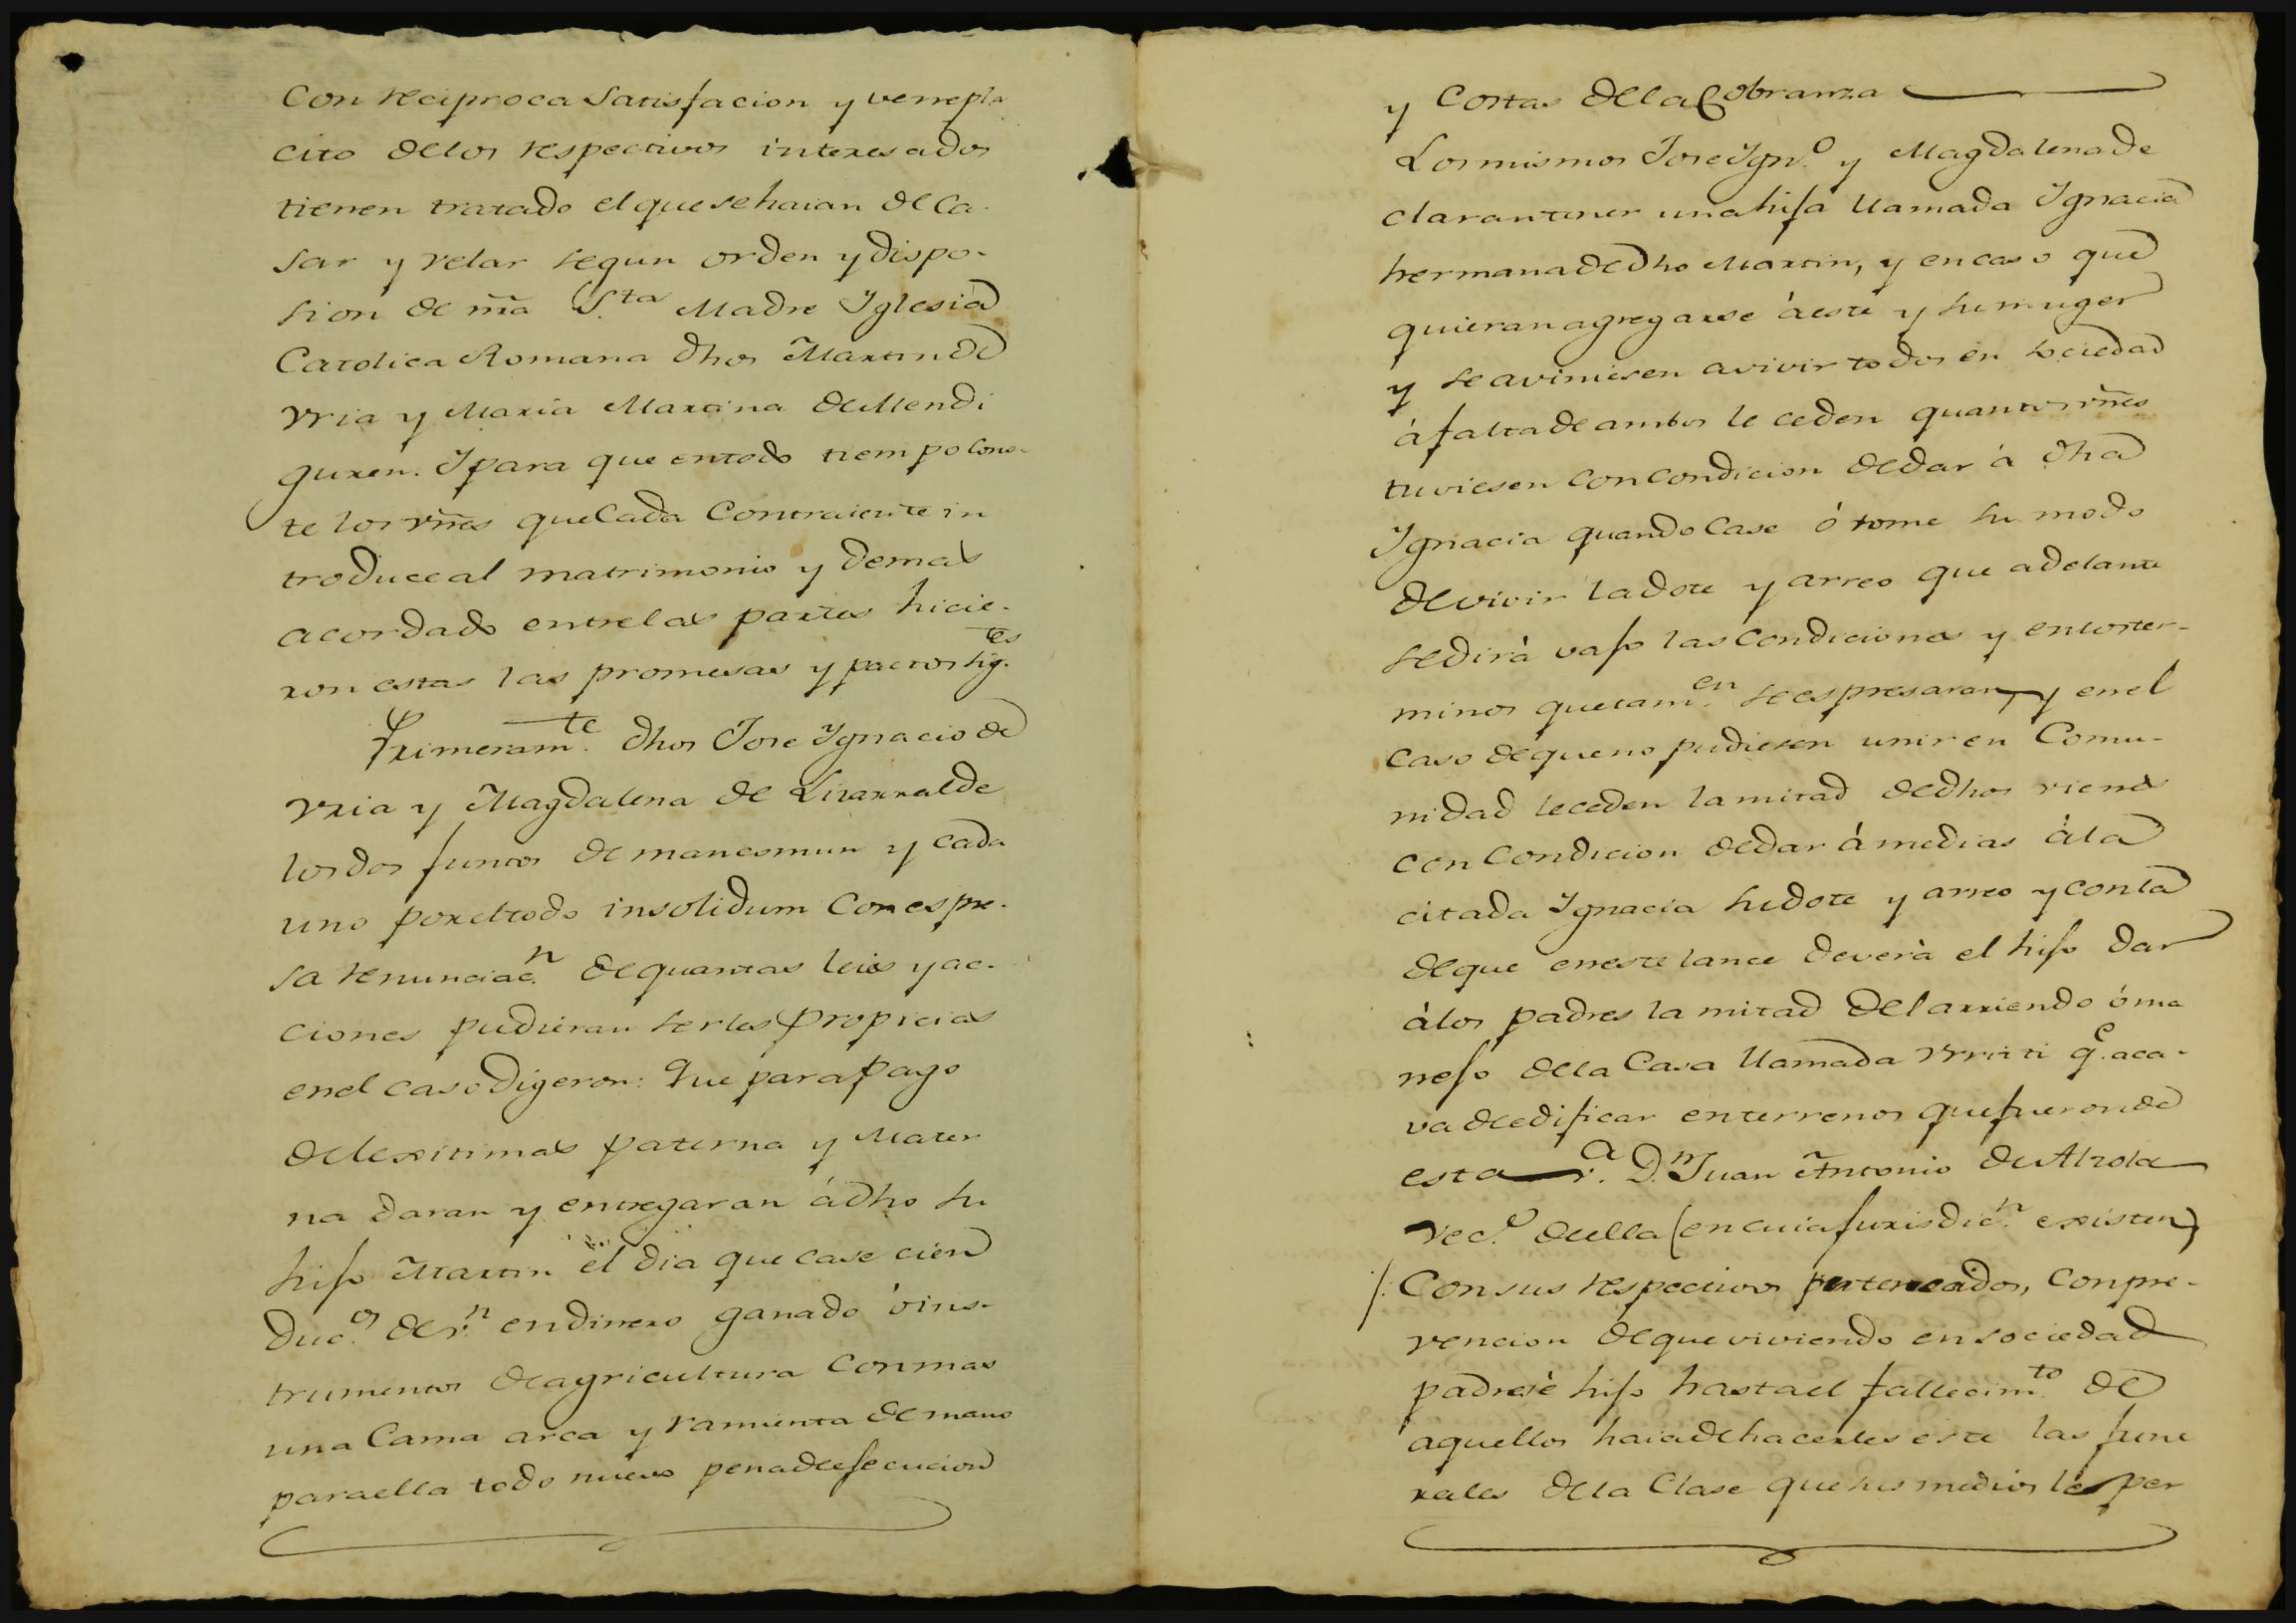 Con reciproca Satisfacion y venepla
cito de los respectivos interesados
tienen tratado el que se haian de ca-
sar y velar segun orden y dispo-
sion de nra S.ta Madre Iglesia
Catolica Romana dhos Martin de
Vria y Maria Martina de Mendi
guren. I para que en todo tiempo cons-
te los vnes que Cada Contraiente in
troduce al matrimonio y demas
acordado entre las partes hicie-
ron estas las promesas y pactos sig.tes
Primeram.te dhos Jose Ygnacio de
Vria y Magdalena de Lizarralde
los dos juntos de mancomun y cada
uno por el todo insolidum Con espre-
sa renunciac.n de quantas leies y ac-
ciones pudieran serles propicias
en el caso digeron: Que para pago
de lexitimas paterna y Mater
na daran y entregaran á dho su
hijo Martin el dia que case cien
Duc.os de v.n en dinero ganado ó ins-
trumentos de agricultura Con mas
una Cama arca y ramienta de mano
para ella todo nuevo pena de ejecucion
y Costas de la Cobranza
Los mismos Jose Ygn.o y Magdalena de
claran tener una hija llamada Ygnacia
hermana de dho Martin, y en caso que
quieran agregarse á este y su muger
y se aviniesen a vivir todos en sociedad
á falta de ambos le ceden quantos vnes
tuviesen con condicion de dar á dha
Ygnacia quando Case ó tome su modo
de vivir la dote y arreo que adelante
se dirá vajo las condiciones y en los ter-
minos que tam.en se espresaran, y en el
caso de que no pudiesen unir en Comu-
nidad le ceden la mitad de dhos vienes
con Condicion de dar á medias á la
citada Ygnacia su dote y arreo y con la
de que en este lance deverà el hijo dar
á los padres la mitad del arriendo ó ma
nejo de la Casa llamada q.e aca-
va de edificar en terrenos que fueron de
esta v.a D.n Juan Antonio de Alzola
vec.o de ella (en cuia jurisdic.n existen)
/. Con sus respectivos pertenecidos, Con pre-
vencion de que viviendo en sociedad
padres è hijo hasta el fallecim.to de
aquellos haia de hacerles este las fune
rales de la Clase que sus medios les per